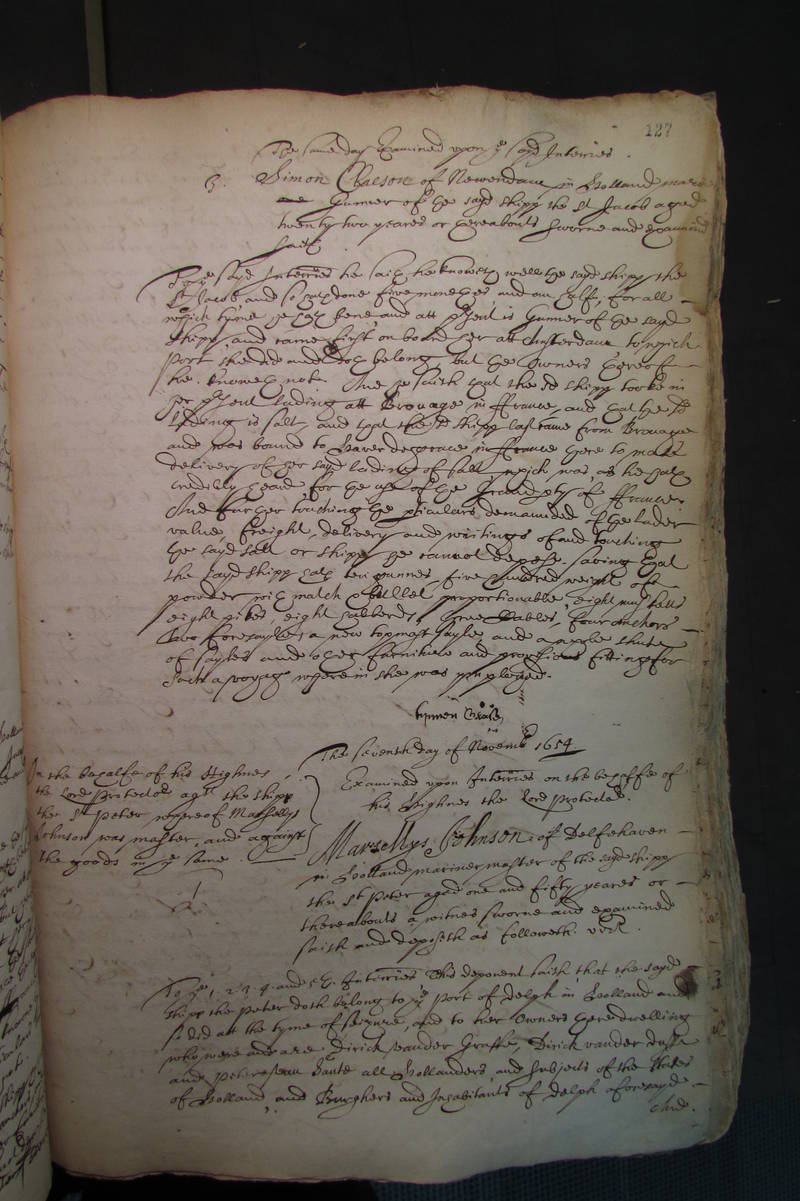 127
The same day Examined upon ye sayd Interries.
3. Simon Claeson of Newendam in Holland
Gunner of the sayd shipp the St Jacob aged
twenty two yeares or thereabouts sworne and examined
saith
To ye sayd Interries he saith he knoweth well the sayd shipp the
St Jacob and so hath done five moneths and an halfe, for all
which tyme he hath bene and att present is Gunner of the sayd
shipp, and came first on board her att Amsterdam to which
port shee did and doth belong but the owners thereof
he knoweth not. And he saith that the sd shipp tooke in
her present lading att Brouage in ffrance, and that the sd
lading is salt, and that the sd shipp last came from Brouage
and was bound to Haver de grace in ffrance there to make
delivery of her sayd lading of salt which was as he hath
credibly heard for the use of the of ffrance.
And further touching the pticulars demanded of the lader
value, freight, delivery and writings of and touching
the sayd salt or shipp he cannot depose saving that
the sayd shipp hath ten gunnes five hundred weight of
powder with match & bullet proportionable, eight musketts
eight pikes, eight halberds, three Cables, four anchors
two foresayles a new topmast sayle, and a
of sayles and other furniture and provisions fitting for
such a voyage wherein she was imployed.
The seventh day of Novemb 1654
Examined upon Interries on the behalfe of
his Highnes the Lord Protector.
On the behalfe of his Highnes
the Lord Protector agt the shipp
the St Peter whereof Marsellys
Johnson was master, and against
the goods in ye same.
Marsellys Johnson of Delfehaven
in Holland mariner master of the sayd shipp
the St Peter aged one and fifty yeares or
thereabouts a witnes sworne and examined
saith and deposeth as followeth vizt.
To ye 1. 2. 3. 4. and 5th. Interries this deponent saith that the sayd
shipp the Peter doth belong to ye port of Delph in Holland and
so did att the tyme of seizure, and to her Owners there dwelling
who were and are Dirick vander Graffe, Dirick vander
and Peter van Sante all Hollanders, and subjects of the States
of Holland, and Burghers and Inhabitants of Delph aforesayd.
And